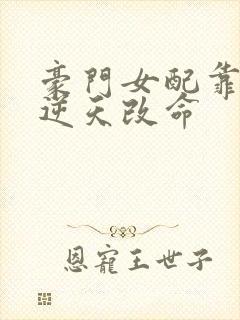 豪門女配靠
逆天改命
恩寵王世子